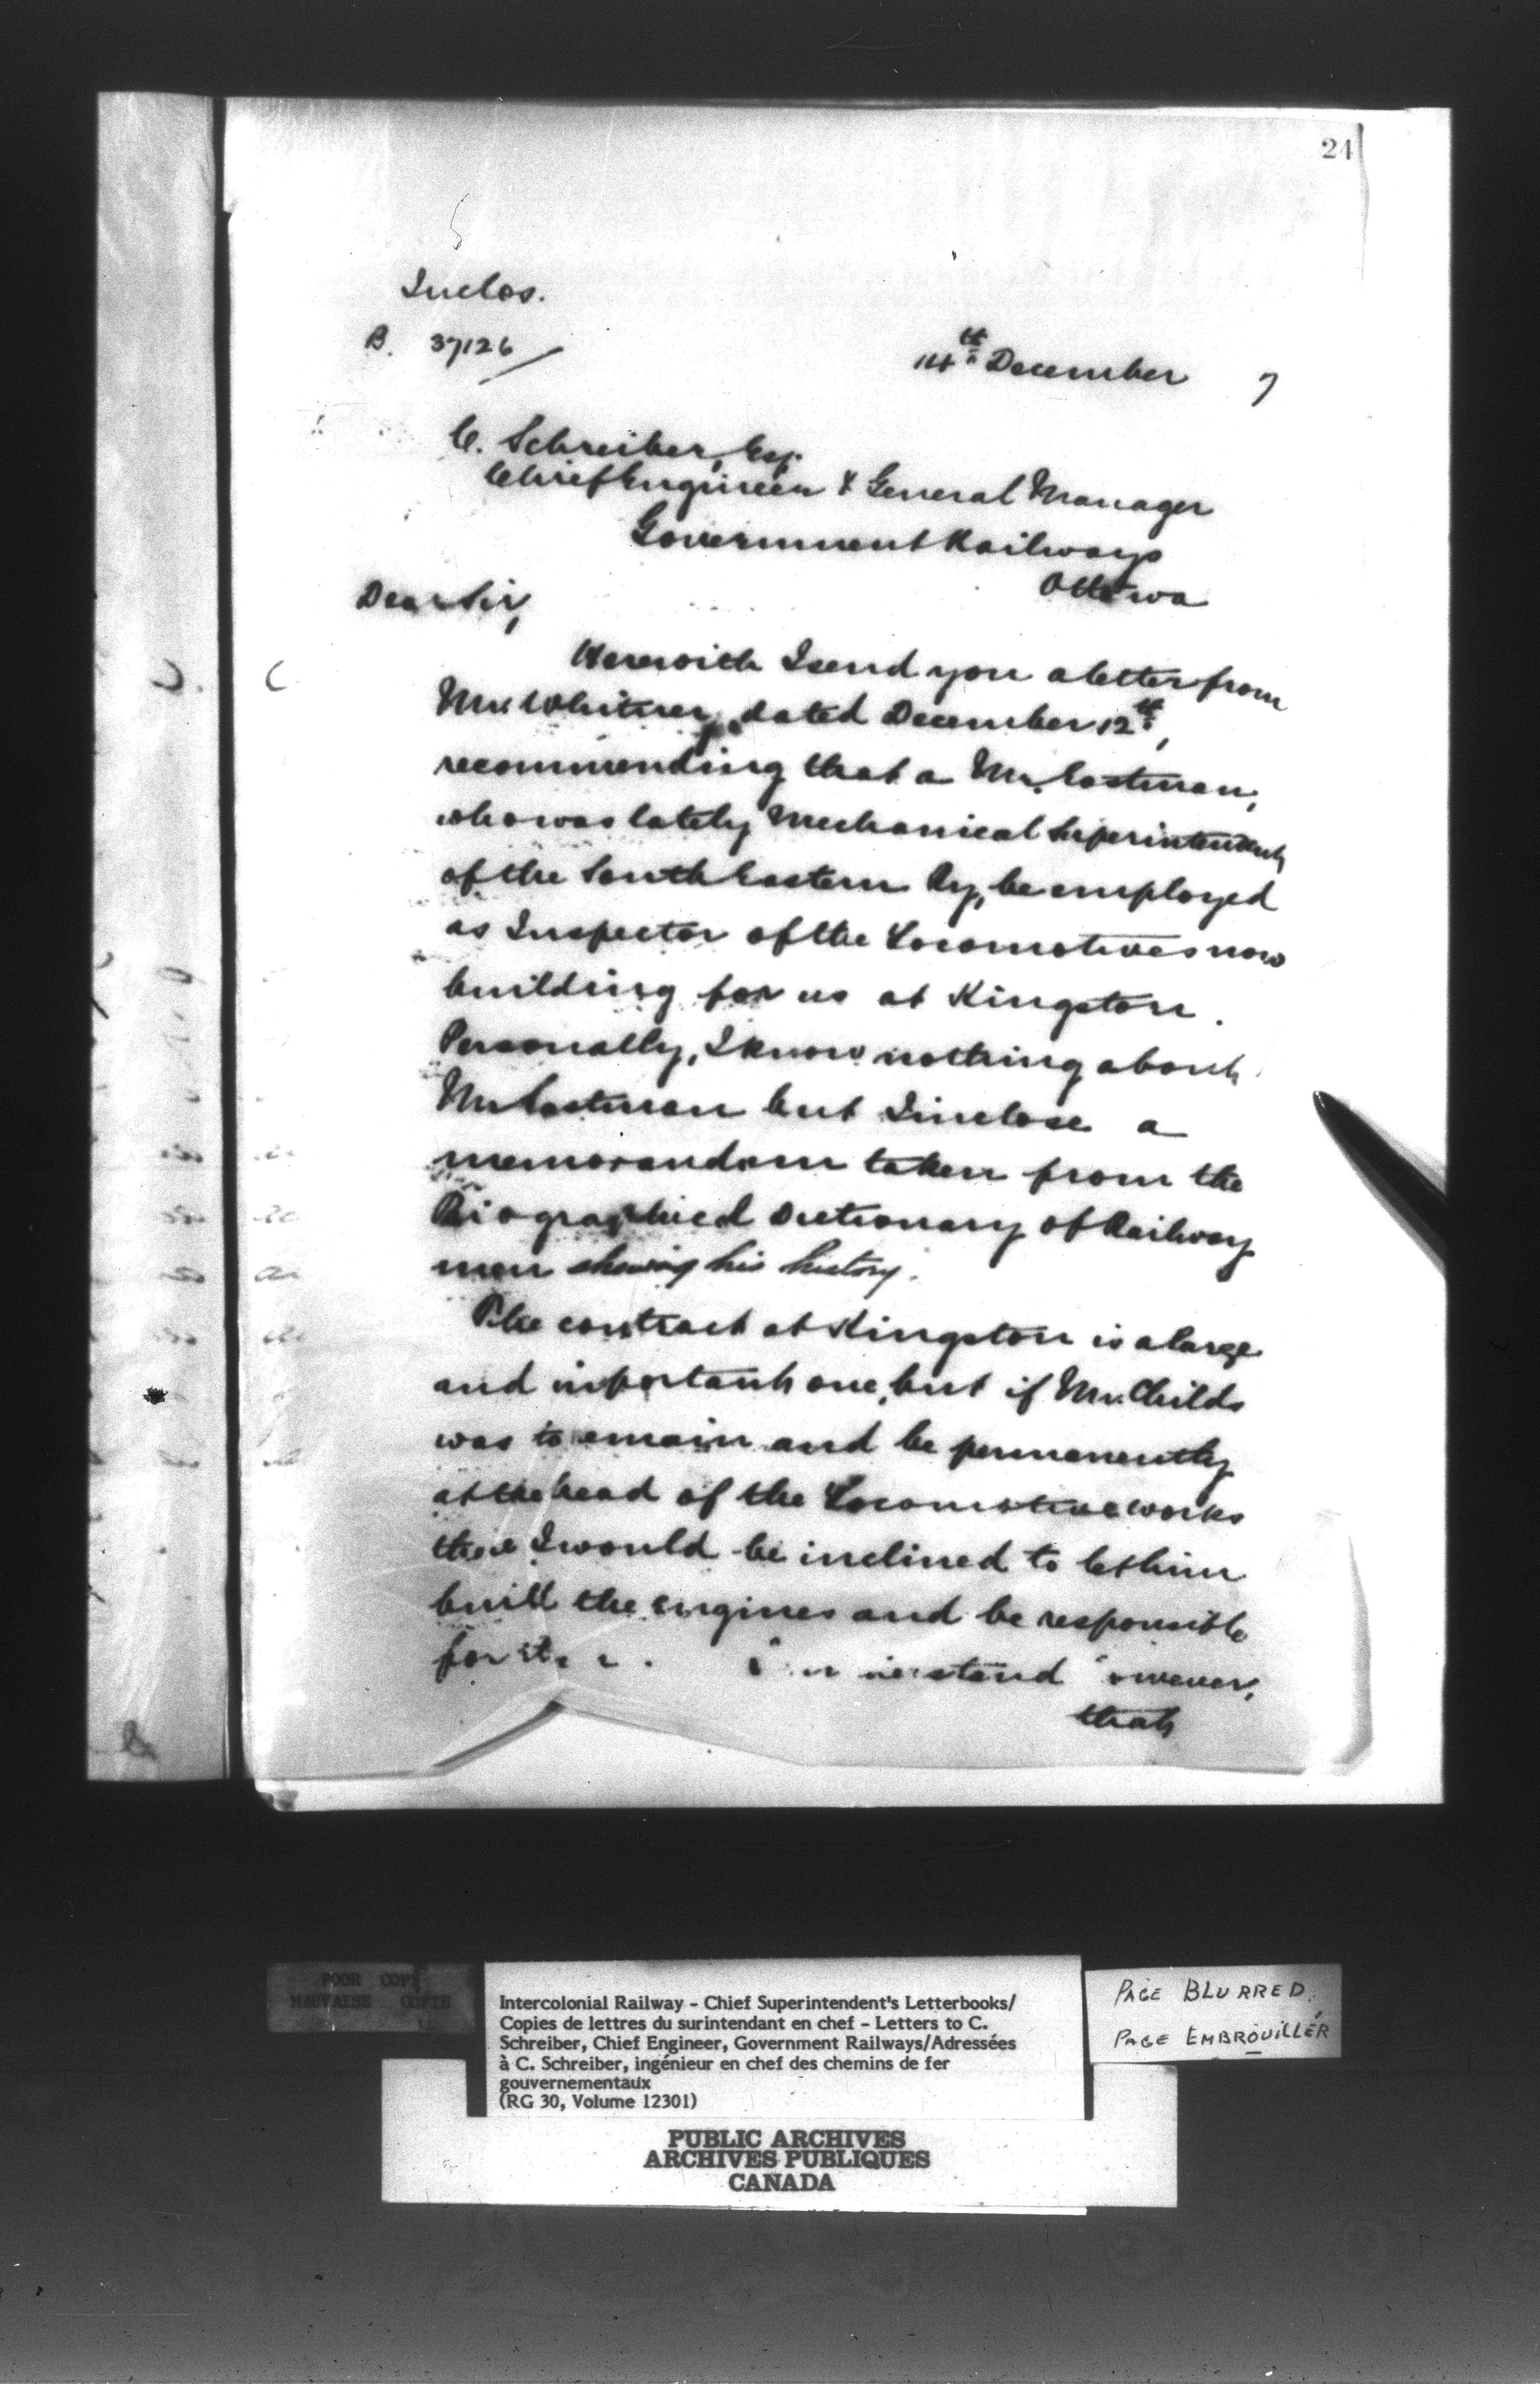 24
Inclos.
B. 37126
14th December 7
C. Schreiber, Esq.
Chief Engineer & General Manager
Government Railways
Ottawa
Dear Sir,
Herewith I send you a letter from
Mr. Whitney, dated December 12th,
recommending that a Mr. Eastman,
who was lately Mechanical Superintendent
of the South Eastern Ry, be employed
as Inspector of the Locomotives now
building for us at Kingston.
Personally, I know nothing about
Mr Eastman but I inclose a
memorandum taken from the
Biographical Dictionary of Railway
men shewing his history.
The contract at Kingston is a large
and important one, but if Mr. Childs
was to remain and be permanently
at the head of the Locomotive works
there I would be inclined to let him
build the engines and be responsible
for
that
POOR COPY
MAUVAISE COPIE
Intercolonial Railway - Chief Superintendent's Letterbooks/
Copies de lettres du surintendant en chef - Letters to C.
Schreiber, Chief Engineer, Government Railways/Adressées
à C. Schreiber, ingénieur en chef des chemins de fer
gouvernementaux
(RG 30, Volume 12301)
PAGE BLURRED.
PAGE EMBROUILLÉR
PUBLIC ARCHIVES
ARCHIVES PUBLIQUES
CANADA